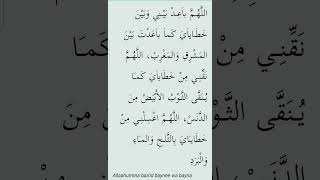 اللَّهُمَّ بَاعِدْ بَيْنِي وَبَيْنَ
خَطَايَايَ كَمَا بَاعَدْتَ بَيْنَ
المَشْرِقِ وَالمَغْرِبِ، اللَّهُمَّ
نَقِّنِي مِنْ خَطَايَايَ كَمَا
يُنَقَّى الثَّوْبُ الأَبْيَضُ مِنَ
الدَّنَسِ، اللَّهُمَّ اغْسِلْنِي مِنْ
خَطَايَايَ بِالثَّلْجِ وَالمَاءِ
وَالْبَرَدِ
Allaahumma baa'id baynee wa bayna